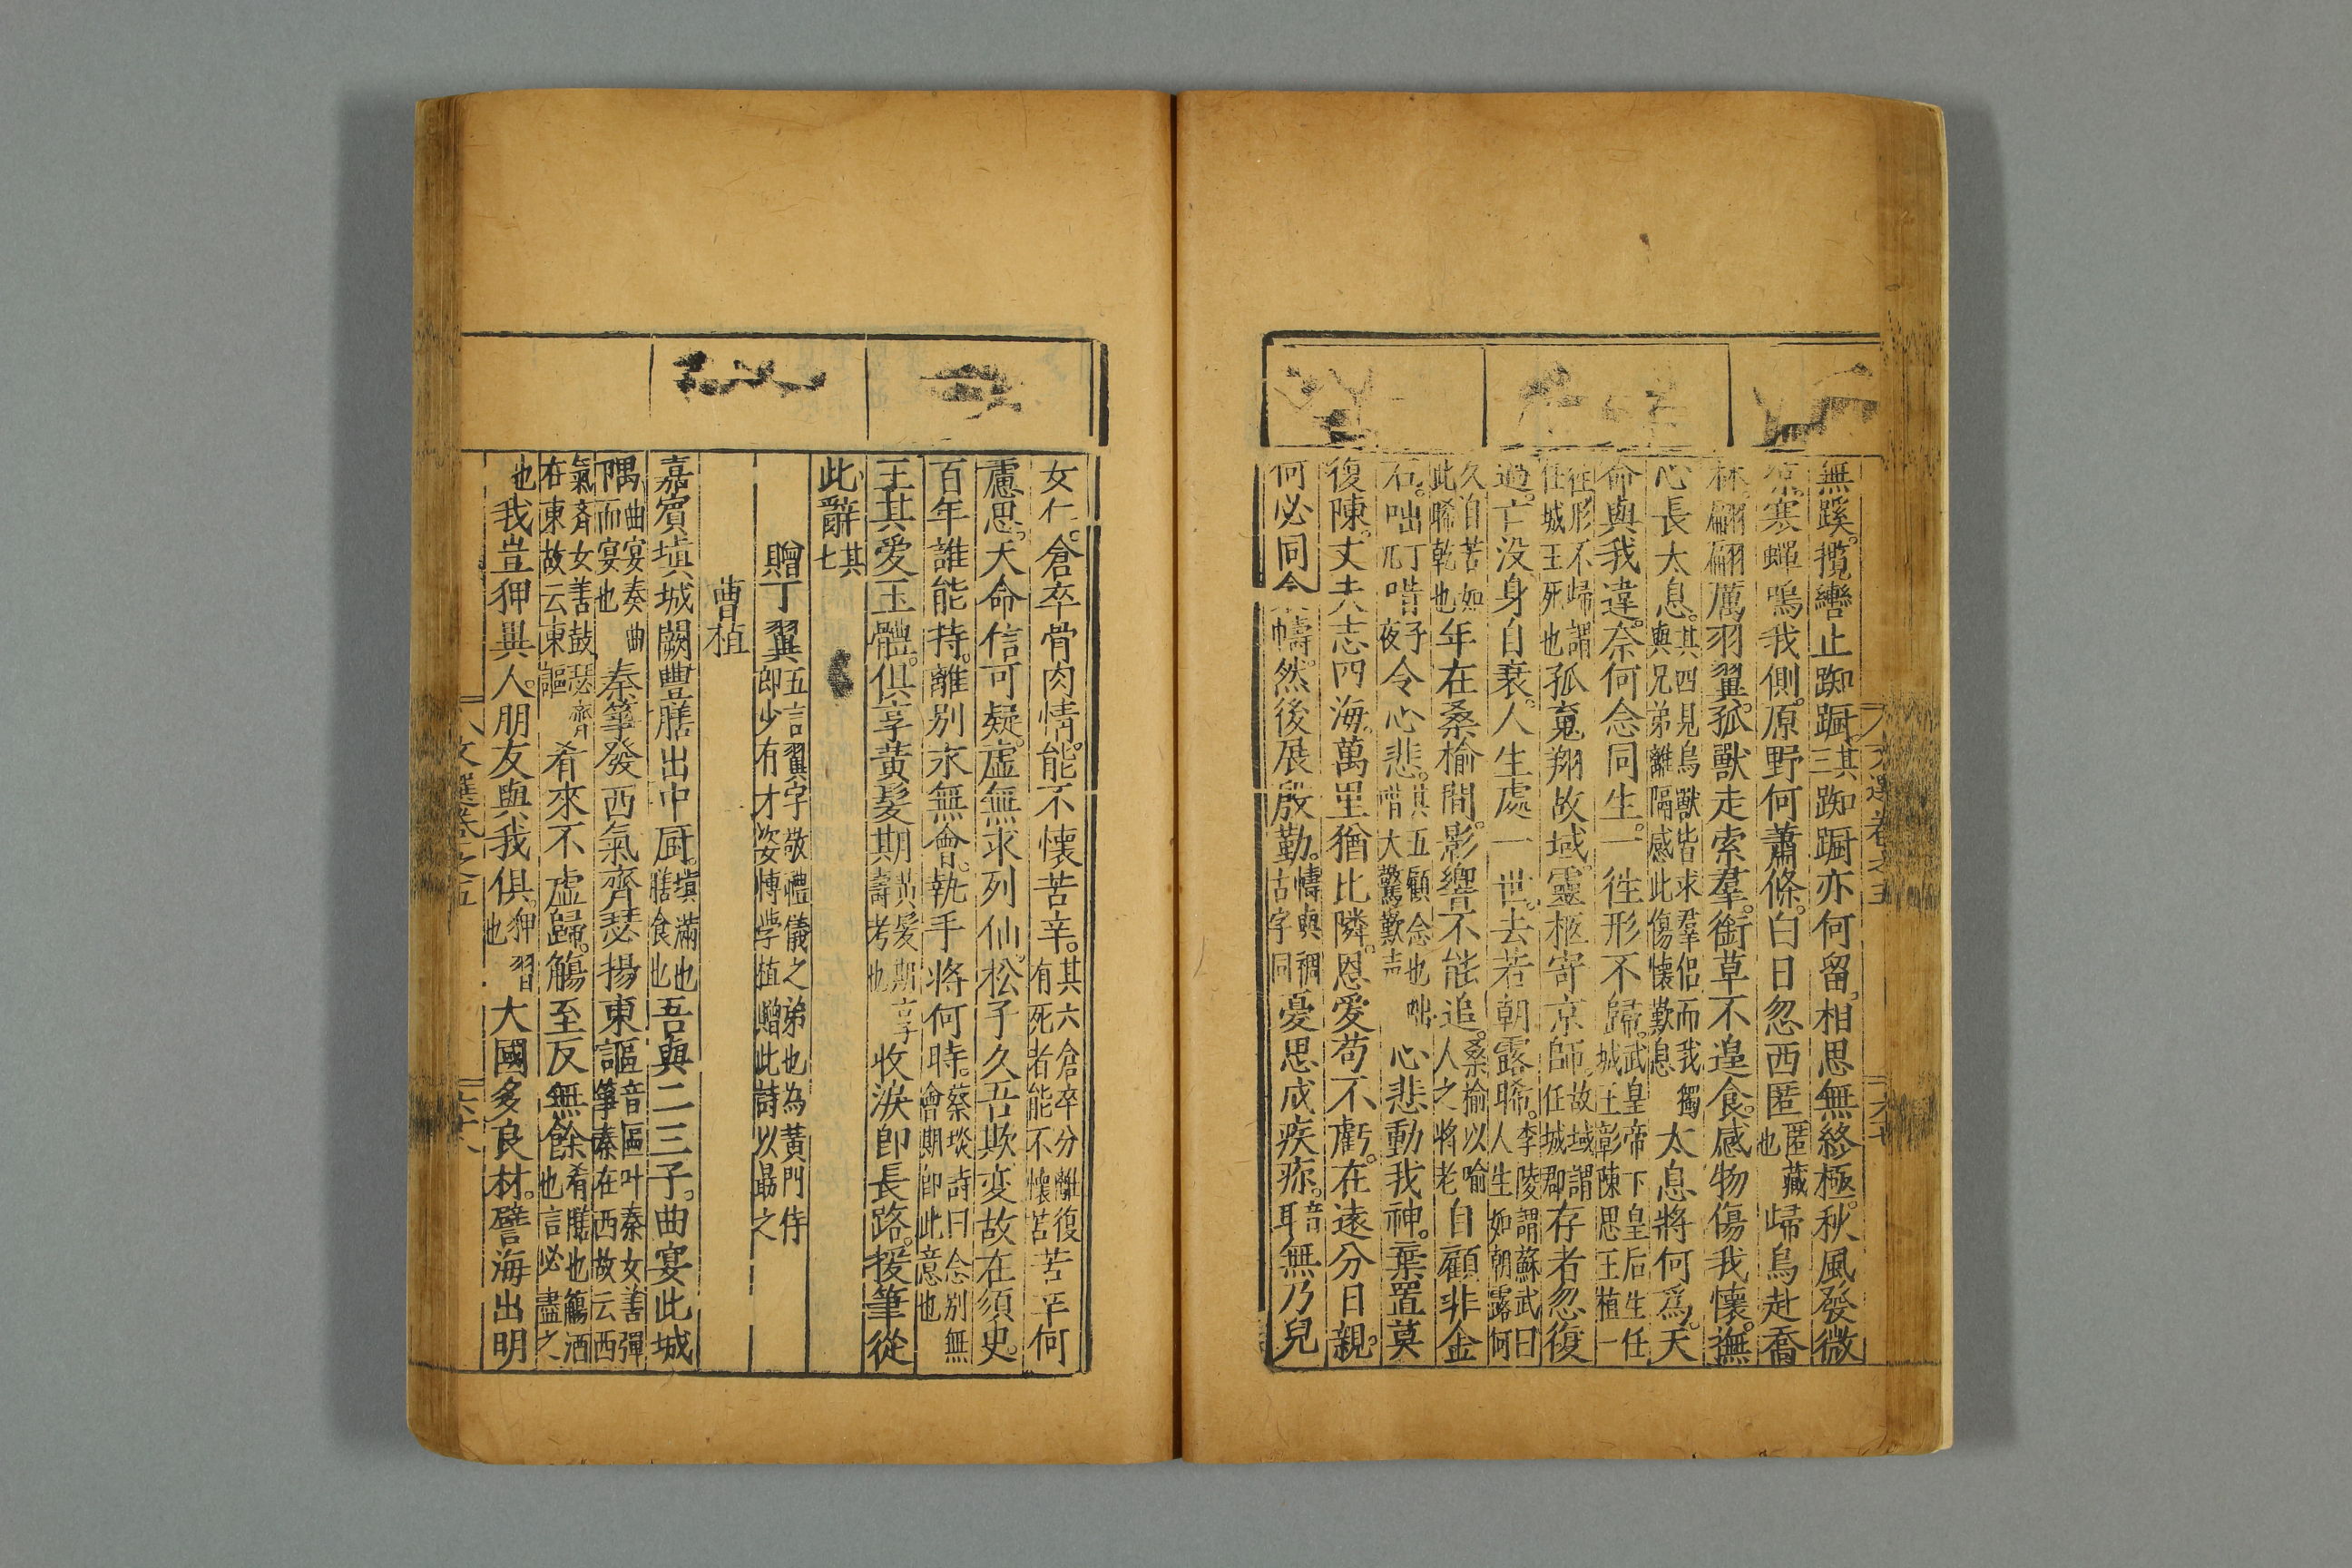 無蹊。攬轡止踟躕。其三踟躕亦何留。相思無終極。秋風發微
凉。寒蟬鳴我側。原野何蕭條。白日忽西匿匿藏也歸鳥赴喬
林。翩翩厲羽翼。孤獸走索羣。銜草不遑食。感物傷我懷。撫
心長太息。其四見鳥獸皆求羣侶而我獨與兄弟離隔感此傷懷歎息太息將何爲。天
命與我違。奈何念同生。一徃形不歸。武皇帝下皇后生任城王彰陳思王植一
徃形不歸謂任城王死也孤䰟翔故域。靈柩寄京師。故域謂任城郡存者忽復
過。亡没身自衰。人生處一世。去若朝露晞。李陵謂蘇武曰人生如朝露何
久自苦如此晞乾也年在桑榆間。影響不能追。桑榆以喻人之將老自顧非金
石。咄丁兀唶子夜令心悲。其五顧念也咄唶大驚歎声心悲動我神。棄置莫
復陳。丈夫志四海。萬里猶比隣。恩愛苟不虧。在遠分日親。
何必同衾幬。然後展殷勤。幬與裯古字同憂思成疾疢。無乃兒
文選卷之五
女仁。倉卒骨肉情。能不懷苦辛。其六倉卒分離復有死者能不懷苦苦辛何
慮思。天命信可疑。虛無求列仙。松子久吾欺変故在須史。
百年誰能持。離別永無會。執手將何時。蔡琰詩曰念別無會期卽此意也
王其愛玉體。俱享黄髪期黄髪期享壽考也收淚卽長路。援筆從
此辭其七
贈丁翼五言翼字敬禮儀之弟也為黄門侍郎少有才姿愽学植贈此詩以勗之
曹植
嘉賔塡城闕豐膳出中厨。塡滿也膳食也吾與二三子。曲宴此城
隅曲宴奏曲下隅而宴也秦箏發西氣齊瑟揚東謳音區叶秦女善彈箏秦在西故云西
氣齊女善鼓瑟齊在東故云東謳肴來不虛歸。觴至反無餘肴膳也觴酒也言必盡之
也我豈狎異人。朋友與我俱。狎習也大國多良材。譬海出明
文選卷之五
六十八